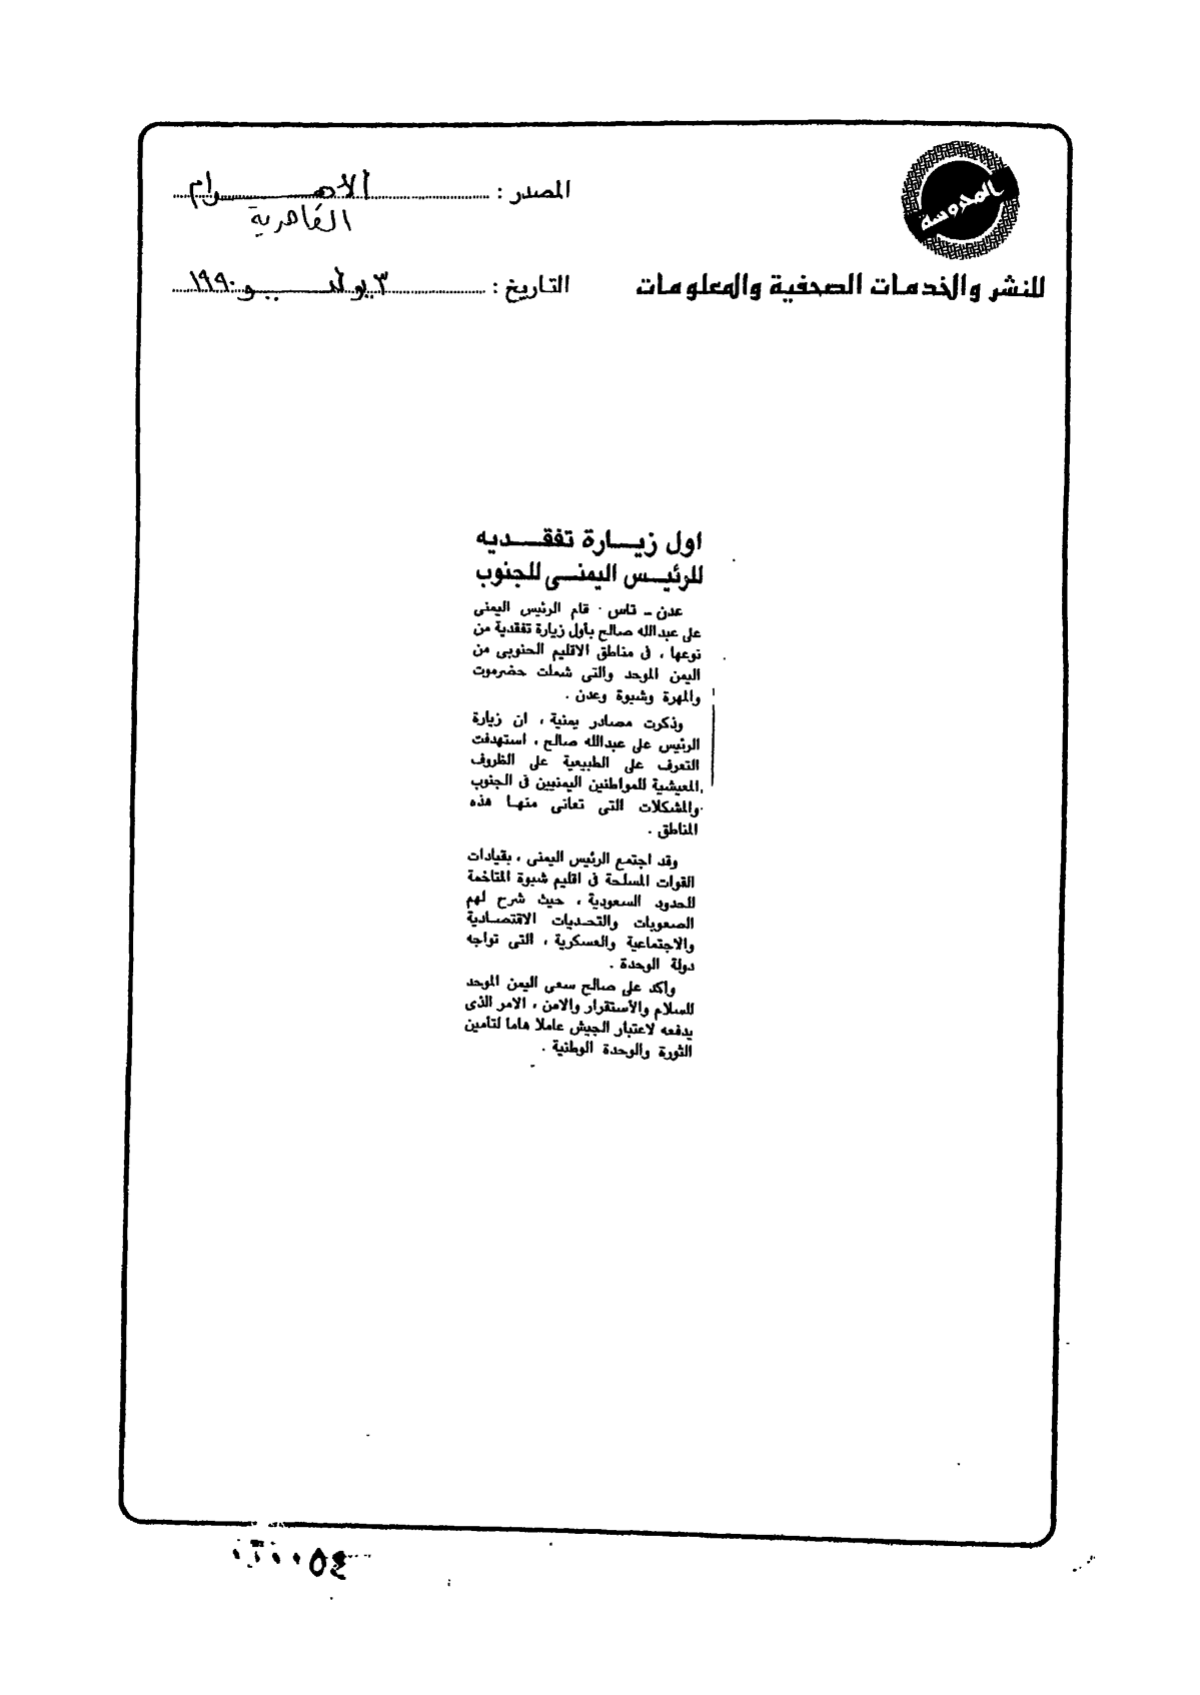 المحروسة
للنشر والخدمات الصحفية والمعلومات
المصدر : الأهرام
القاهرية
التاريخ : ٣ يوليو ١٩٩٠
اول زيارة تفقديه
للرئيس اليمنى للجنوب
عدن - تاس · قام الرئيس اليمنى
على عبدالله صالح بأول زيارة تفقدية من
نوعها ، فى مناطق الاقليم الجنوبى من
اليمن الموحد والتى شملت حضرموت
والمهرة وشبوة وعدن .
وذكرت مصادر يمنية ، ان زيارة
الرئيس على عبدالله صالح ، استهدفت
التعرف على الطبيعية على الظروف
المعيشية للمواطنين اليمنيين فى الجنوب
والمشكلات التى تعانى منها هذه
المناطق .
وقد اجتمع الرئيس اليمنى ، بقيادات
القوات المسلحة فى اقليم شبوة المتاخمة
للحدود السعودية ، حيث شرح لهم
الصعوبات والتحديات الاقتصادية
والاجتماعية والعسكرية ، التى تواجه
دولة الوحدة .
وأكد على صالح سعى اليمن الموحد
للسلام والأستقرار والامن ، الامر الذى
يدفعه لاعتبار الجيش عاملا هاما لتأمين
الثورة والوحدة الوطنية .